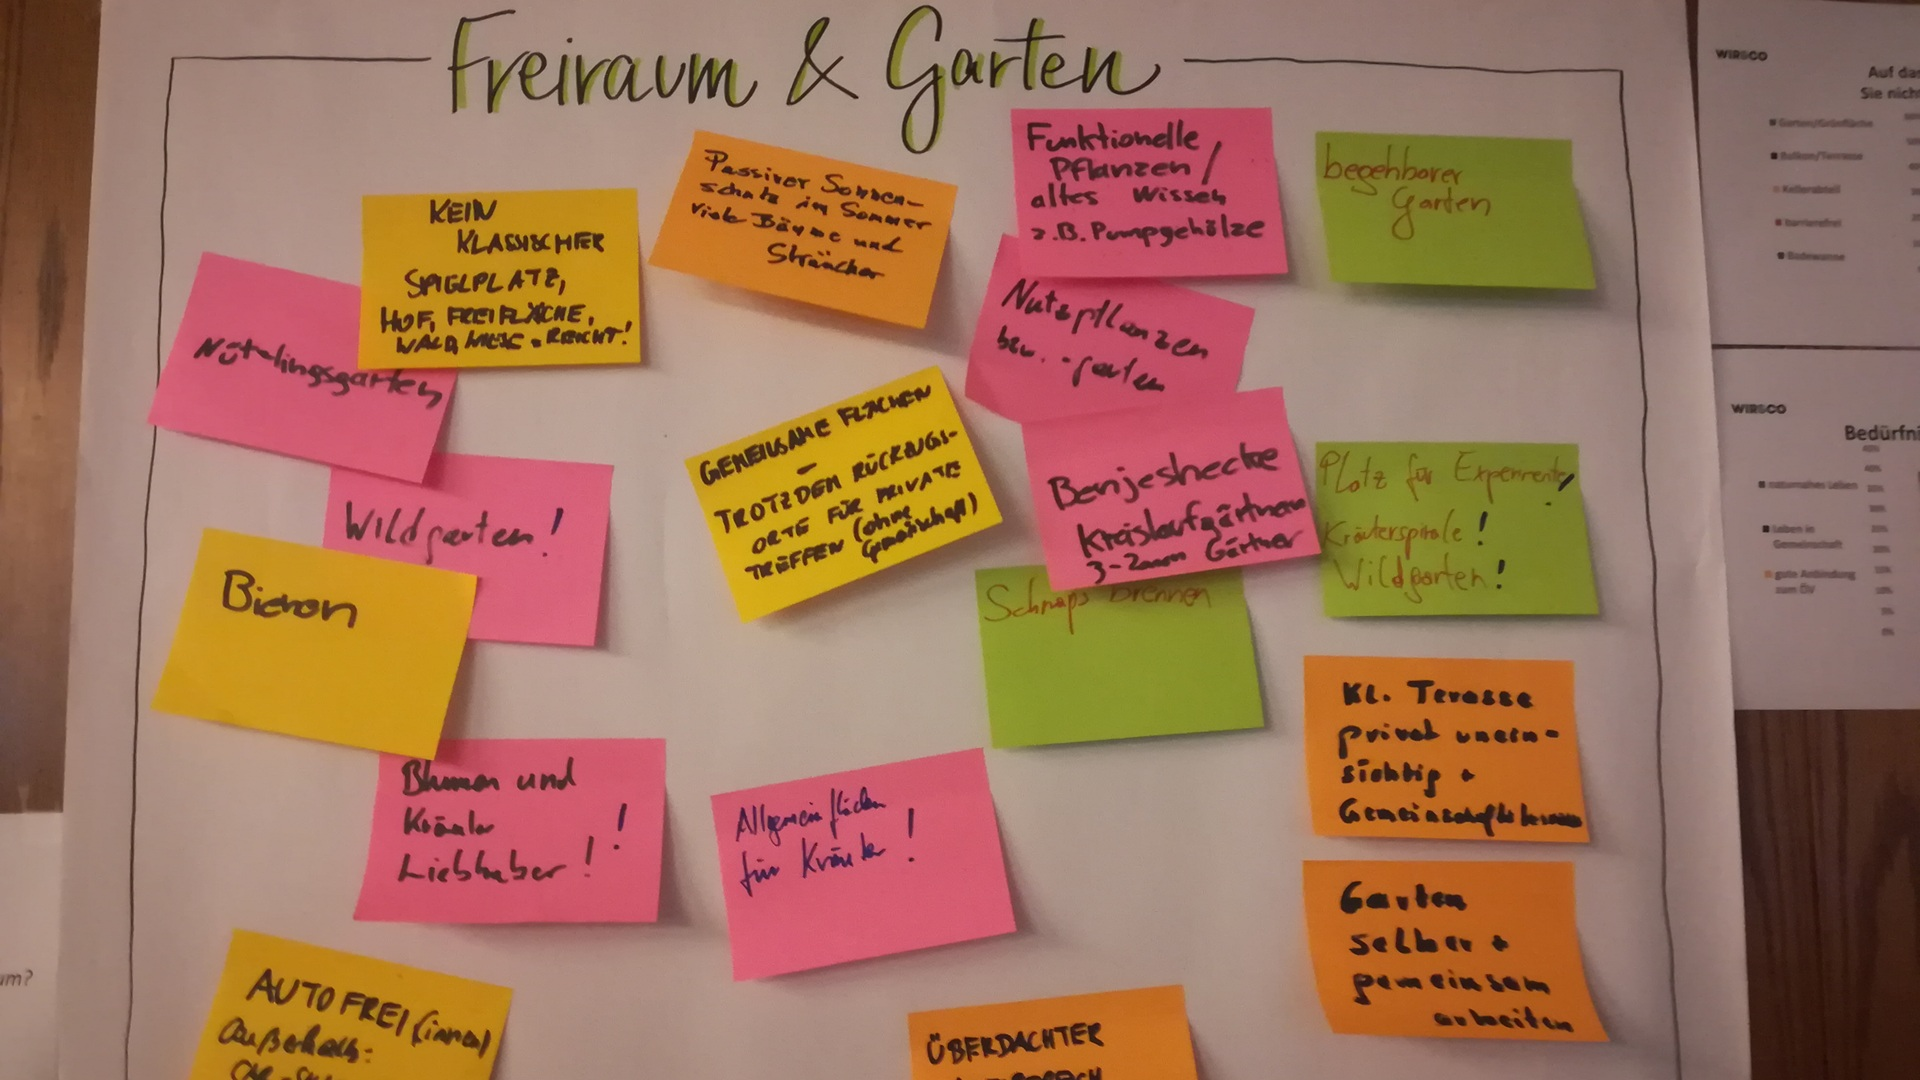 Freiraum & Garten
KEIN
KLASSISCHER
SPIELPLATZ,
HOF, FREIFLÄCHE,
WALD, WIESE = REICHT!
Passiver Sonnen-
schutz im Sommer
viele Bäume und
Sträucher
Funktionelle
Pflanzen /
altes Wissen
z.B. Pumpgehölze
begehbarer
Garten
Nützlingsgarten
Nutzpflanzen
bzw. -garten
Wildgarten!
GEMEINSAME FLÄCHEN
–
TROTZDEM RÜCKZUGS-
ORTE FÜR PRIVATE
TREFFEN (ohne
Gemeinschaft)
Benjeshecke
Kreislaufgärtnern
3-Zonen Gärtner
Platz für Experimente!
Kräuterspirale!
Wildgarten!
Bienen
Schnaps brennen
Kl. Terasse
privat unein-
sichtig +
Blumen und
Kräuter
Liebhaber!!
Allgemeinflächen
für Kräuter!
Garten
selber +
gemeinsam
arbeiten
AUTOFREI (innen)
außerhalb:
ÜBERDACHTER
WIRSCO
Auf das
Sie nich
Garten/Grünfläche
Balkon/Terrasse
Kellerabteil
barrierefrei
Badewanne
WIRSCO
Bedürfni
naturnahes Leben
Leben in
Gemeinschaft
gute Anbindung
zum ÖV
um?